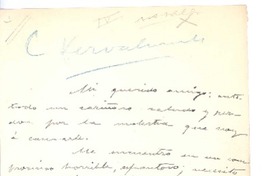 C Vervalcande
Mi querido amigo: ante
todo un cariñoso saludo y per-
don por la molestia que voy
á causarle.
Me encuentro en un com
promiso horrible, espantoso, necesito